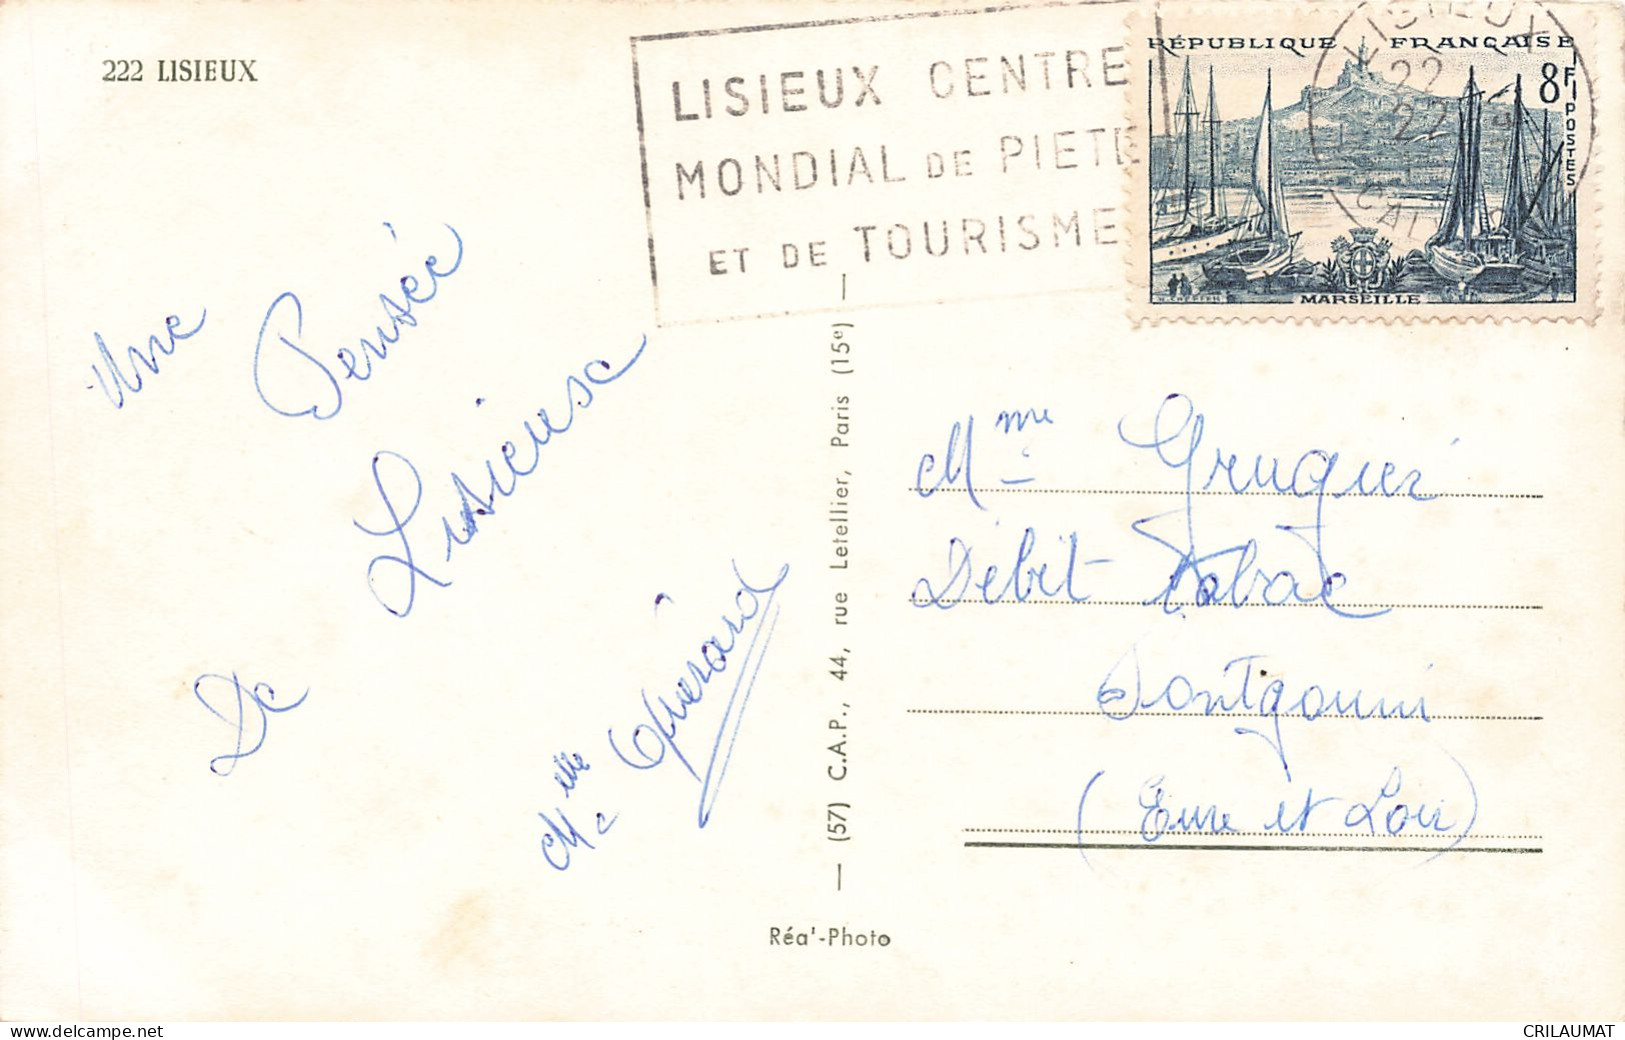 222 LISIEUX
LISIEUX CENTRE
MONDIAL DE PIETE
ET DE TOURISME
RÉPUBLIQUE FRANÇAISE
8F
POSTES
MARSEILLE
LISIEUX
22
22
CAL
Une
Pensée
Lexovienne
De
Melle Guérard
(57) C.A.P., 44, rue Letellier, Paris (15e)
Réa'-Photo
Mme Gruguer
Débit Tabac
Pontgouin
(Eure et Loir)
delcampe.net
CRILAUMAT